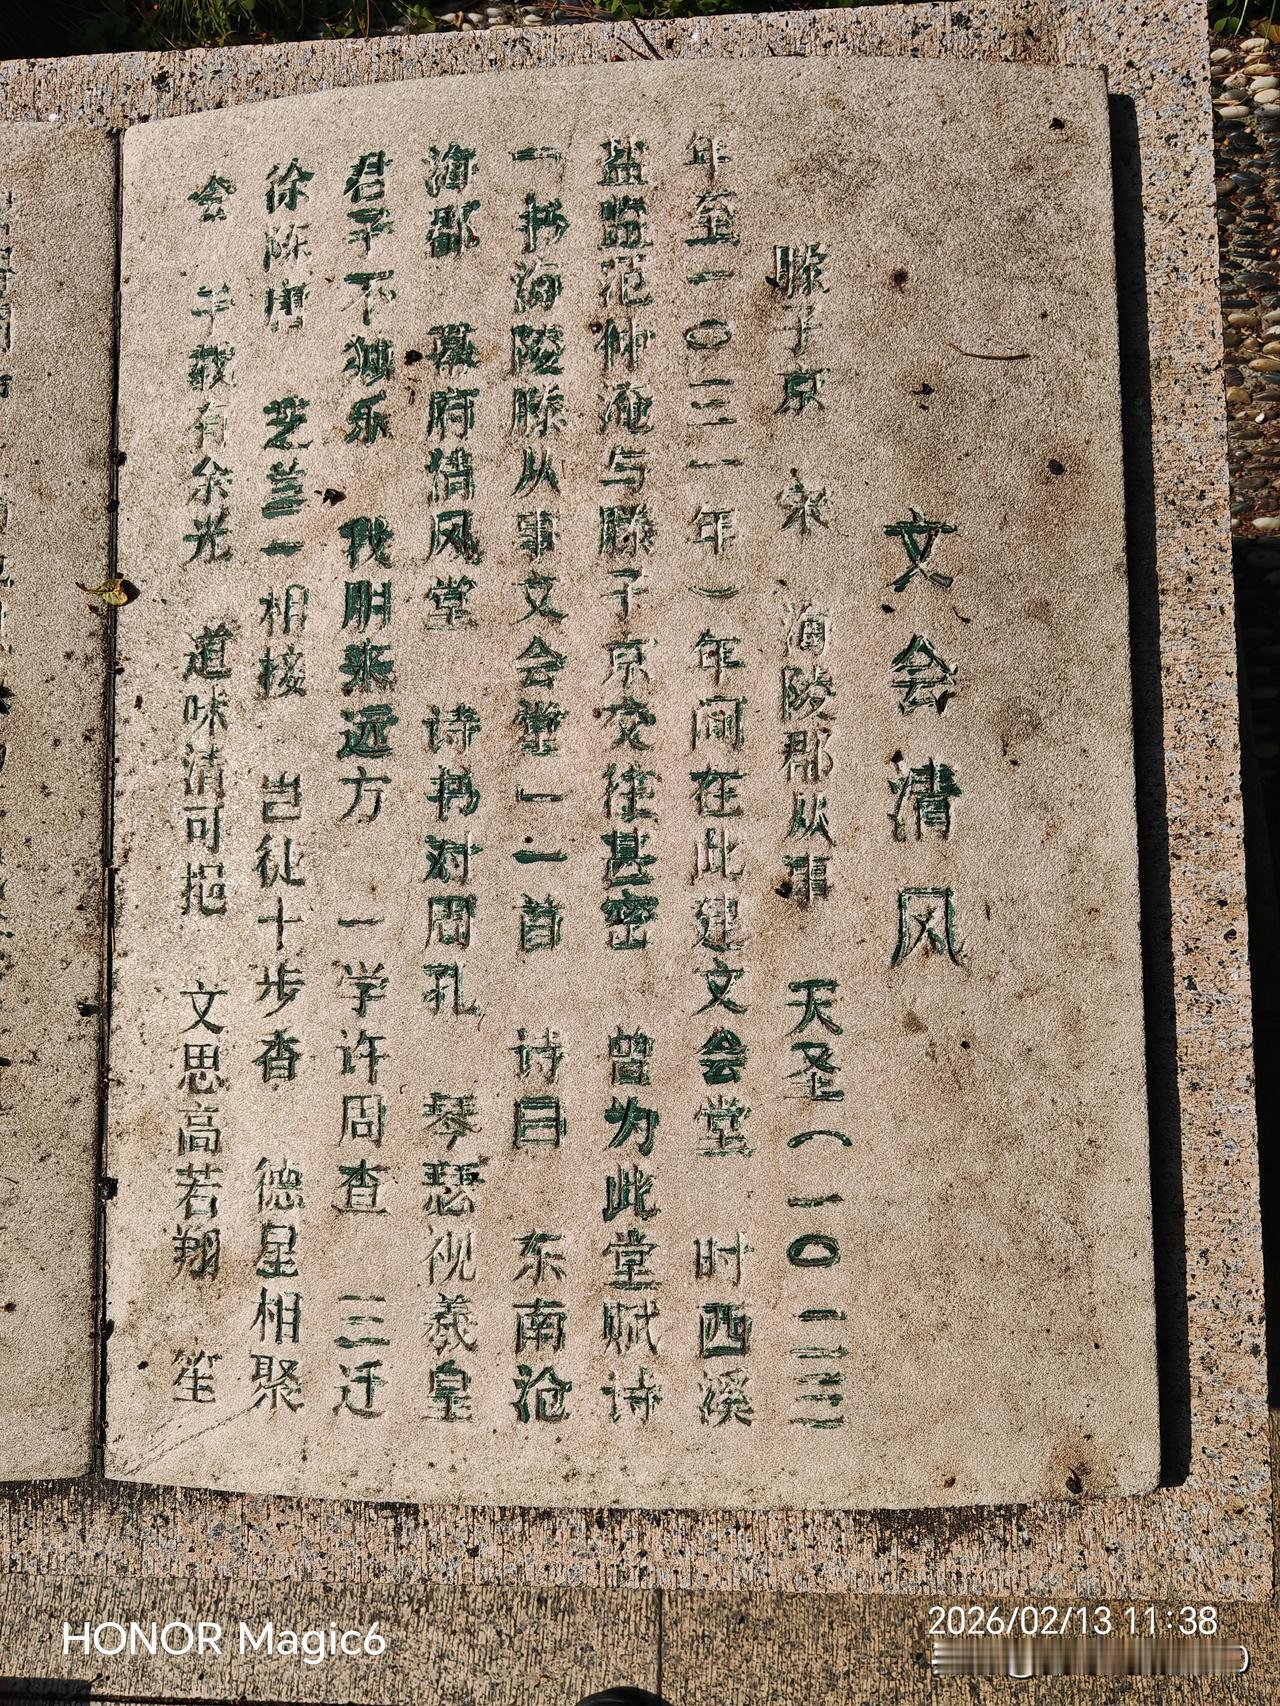 文会清风
滕子京 宋 海陵郡从事 天圣(一〇二三
年至一〇三一年)年间在此建文会堂 时西溪
盐监范仲淹与滕子京交往甚密 曾为此堂赋诗
一书海陵滕从事文会堂一一首 诗曰 东南沧
海郡 幕府清风堂 诗书对周孔 琴瑟视羲皇
君子不独乐 我朋来远方 一学许周查 三迁
徐陈唐 芝兰一相接 岂徒十步香 德星相聚
会 千载有余光 道味清可挹 文思高若翔 笙
HONOR Magic6
2026/02/13 11:38